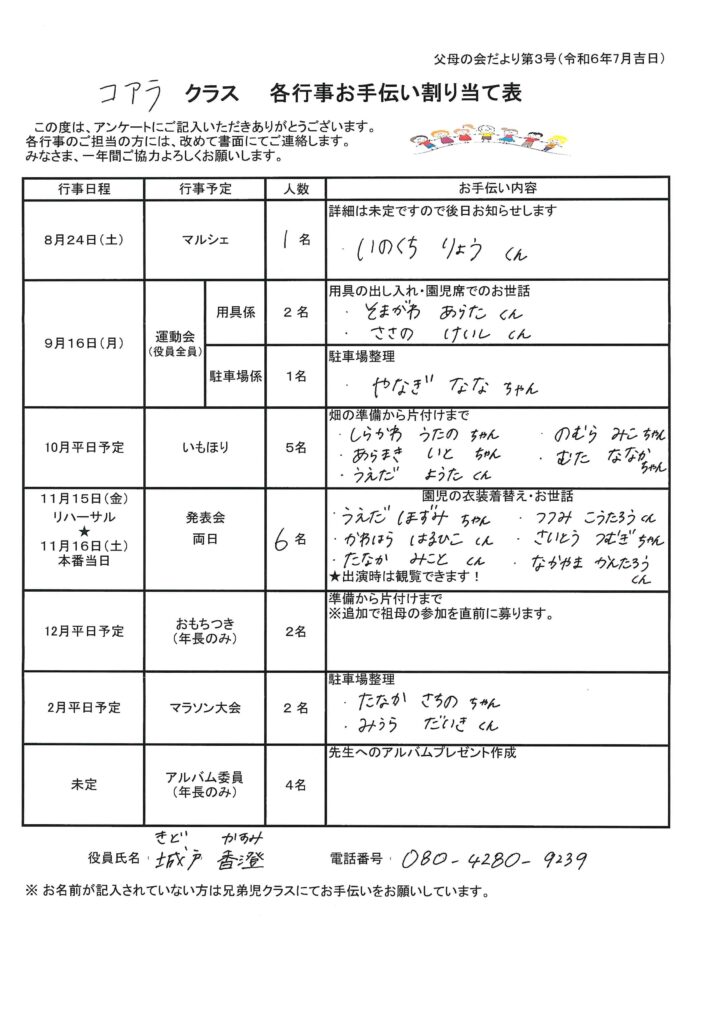 父母の会だより第3号(令和6年7月吉日)
コアラ クラス 各行事お手伝い割り当て表
この度は、アンケートにご記入いただきありがとうございます。
各行事のご担当の方には、改めて書面にてご連絡します。
みなさま、一年間ご協力よろしくお願いします。
行事日程 行事予定 人数 お手伝い内容
8月24日(土) マルシェ 1名 詳細は未定ですので後日お知らせします
・いのくち りょう くん
9月16日(月) 運動会 (役員全員) 用具係 2名 用具の出し入れ・園児席でのお世話
・そまがわ あらた くん
・ささの けいし くん
駐車場係 1名 駐車場整理
・やなぎ なな ちゃん
10月平日予定 いもほり 5名 畑の準備から片付けまで
・しらかわ うたの ちゃん ・のむら みこ ちゃん
・あらまき いと ちゃん ・むた ななか ちゃん
・うえだ ようた くん
11月15日(金) リハーサル ★ 11月16日(土) 本番当日 発表会 両日 6名 園児の衣装着替え・お世話
・うえだ ほずみ ちゃん ・つつみ こうたろう くん
・かわはら はるひこ くん ・さいとう つむぎ ちゃん
・たなか みこと くん ・なかやま かんたろう くん
★出演時は観覧できます!
12月平日予定 おもちつき (年長のみ) 2名 準備から片付けまで
※追加で祖母の参加を直前に募ります。
2月平日予定 マラソン大会 2名 駐車場整理
・たなか さちの ちゃん
・みうら だいき くん
未定 アルバム委員 (年長のみ) 4名 先生へのアルバムプレゼント作成
きど かすみ
役員氏名: 城戸 香澄 電話番号: 080-4280-9239
※ お名前が記入されていない方は兄弟児クラスにてお手伝いをお願いしています。